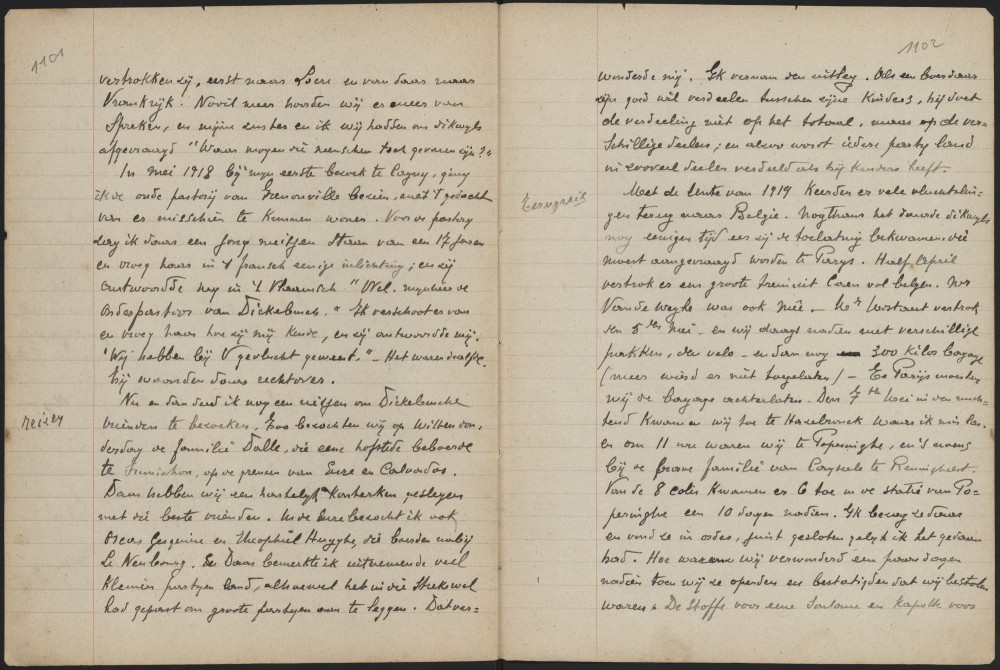 1101
vertrokken zij, eerst naar Locre en van daar naar
Vrankrijk. Nooit meer hoorden wij ermeer van
spreken, en mijne zuster en ik wij hadden ons dikwijls
afgevraagd "Waar mogen die menschen toch gevaren zijn?"
In mei 1918 bij mijn eerste bezoek te Cagny, ging
ik de oude pastorij van Frenouville bezien, met 't gedacht
van er misschien te kunnen wonen. Voor de pastorij
zag ik daar een jong meitsen staan van een 17 jaren
en vroeg haar in 't fransch eenige inlichting; en zij
antwoordde my in 't Vlaamsch "Wel, mijnheer de
onderpastoor van Dickebusch." Ik verschoot er van
en vroeg haar hoe zij mij kende, en zij antwoordde mij:
"Wij hebben bij U gevlucht geweest." - Het waren dezelfde.
Zij woonden daar rechtover.
reizen
Nu en dan deed ik nog een reisjen om Dickebussche
vrienden te bezoeken. Zoo bezochten wij op Witten don-
derdag de familie Dalle, die eene hofstede beboerde
te Fumichon, op de grenzen van Eure en Calvados.
Daar hebben wij een hartelijk kontertien geslegen
met die beste vrienden. In de Eure bezocht ik ook
Oscar Gequiere en Theophiel Huyghe, die boerden nabij
Le Neubourg. Daar bemerkte ik uitnemende veel
kleine partijen land, alhoewel het in die streke wel
had gepast om groote partijen aan te leggen. Dat ver=
1102
wonderde mij. Ik vernam den uitleg. Als een boer daar
zijn goed wil verdeelen tusschen zijne kinders, hij doet
de verdeeling niet op het totaal, maar op de ver-
schillige deelen; en alzoo wordt iedere party land
in zooveel deelen verdeeld als hij kinders heeft.
Terugreis
Met de lente van 1919 keerden er vele vluchtelin-
gen terug naar Belgie. Nogthans het duurde dikwijls
nog eenigen tijd eer zij de toelating bekwamen, die
moest aangevraagd worden te Parys. Half April
vertrok er een groote trein uit Caen vol belgen. Mr
Vandeweghe was ook mêe. - Mr Lostant vertrok
den 5den Mei - en wij daags nadien met verschillige
pakken, den velo - en dan nog 300 kilos bagage
(meer wierd er niet toegelaten) - Te Parijs moesten
wij de bagage achterlaten. Den 7th mei in den uuch-
tend kwamen wij toe te Hazebrouck waar ik mis las.
en om 11 ure waren wij te Poperinghe, en 's avonds
bij de brave familie van Cayseele te Reninghelst.
Van de 8 colis kwamen er 6 toe in de statie van Po-
peringhe een 10 dagen nadien. Ik bezag ze daar
en vond ze in orde, juist gesloten gelijk ik het gedaan
had. Hoe waren wij verwonderd een paar dagen
nadien toen wij ze openden en bestatigden dat wij bestolen
waren. De stoffe voor eene soutane en kapotte voor